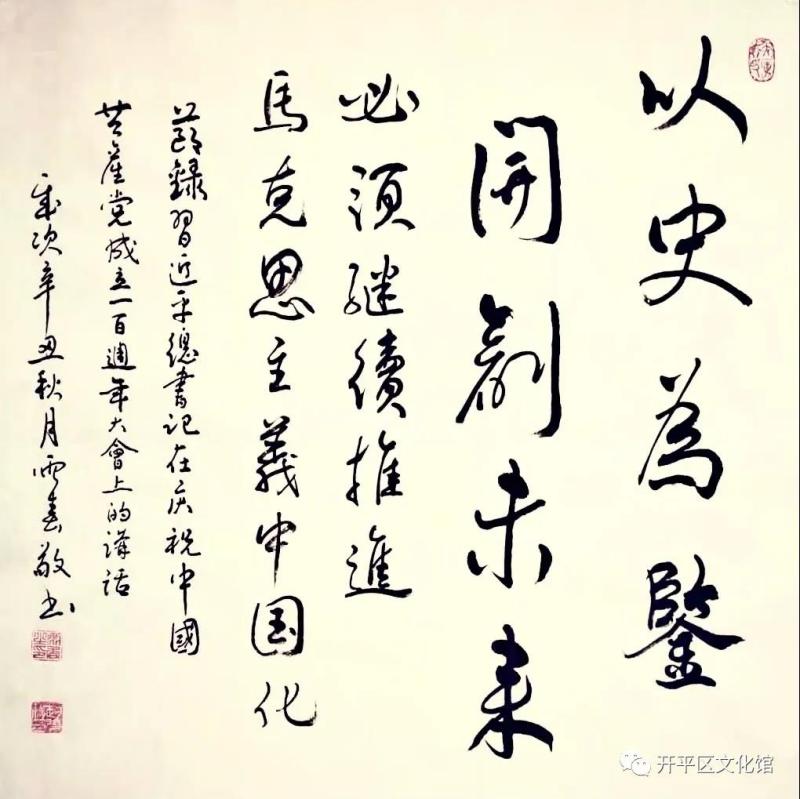 以史為鑒
開創未来
必須继續推進
馬克思主義中国化
節錄習近平總書記在庆祝中國
共產党成立一百週年大會上的講話
歲次辛丑秋月敬书
开平区文化馆